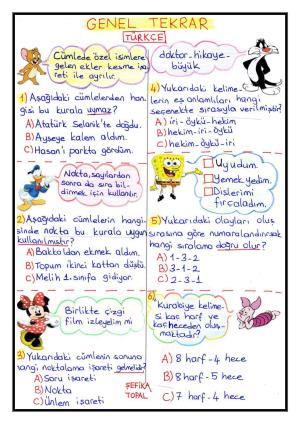 GENEL TEKRAR
TÜRKÇE
Cümlede özel isimlere
gelen ekler kesme işa
reti ile ayrılır.
1) Aşağıdaki cümlelerden han
gisi bu kurala uymaz?
A) Atatürk Selanik'te doğdu.
B) Ayşeye kalem aldım.
C) Hasan'ı parkta gördüm.
Nokta, sayılardan
sonra da sıra bil-
dirmek için kullanılır.
2) Aşağıdaki cümlelerin hangi-
sinde nokta bu kurala uygun
kullanılmıştır?
A) Bakkaldan ekmek aldım.
B) Topum ikinci kattan düştü.
C) Melih 1. sınıfa gidiyor.
Birlikte çizgi
film izleyelim mi
3) Yukarıdaki cümlenin sonuna
hangi noktalama işareti gelmelidir?
A) Soru işareti
B) Nokta
C) Ünlem işareti
ŞEFİKA
TOPAL
doktor-hikaye-
büyük
4) Yukarıdaki kelime-
lerin eş anlamlıları hangi
seçenekte sırasıyla verilmiştir?
A) iri-öykü-hekim
B) hekim-iri-öykü
C) hekim-öykü-iri
Uyudum.
Yemek yedim.
Dişlerimi
fırçaladım.
5) Yukarıdaki olayları oluş
sırasına göre numaralandırırsak
hangi sıralama doğru olur?
A) 1-3-2
B) 3-1-2
C) 2-3-1
6)
Kurabiye kelime-
si kaç harf ve
kaç heceden oluş-
maktadır?
A) 8 harf-4 hece
B) 8 harf-5 hece
C) 7 harf-4 hece